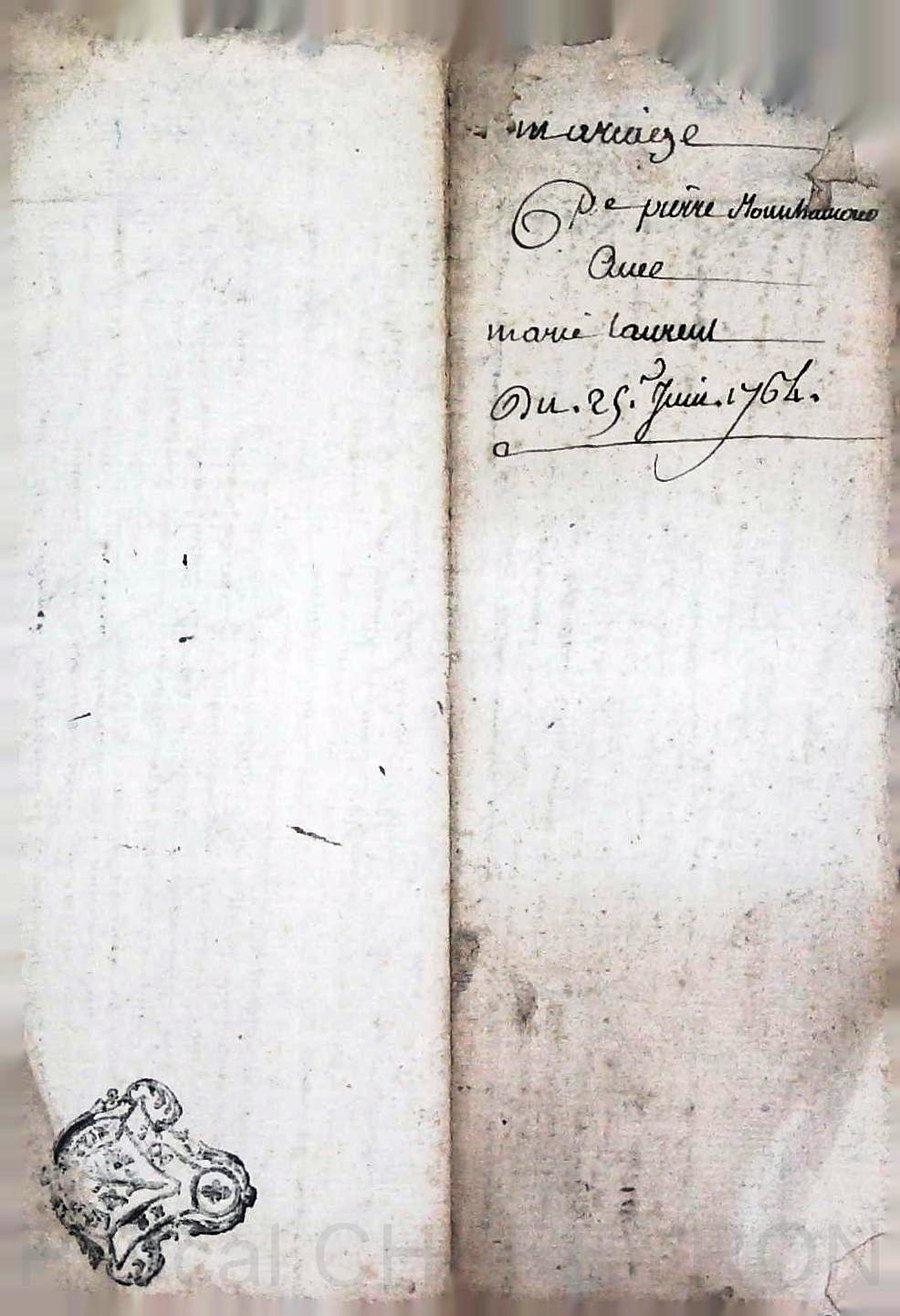 mariage
De pierre
Avec
marie laurent
Du. 25. Juin. 1764.
Pascal CH RON